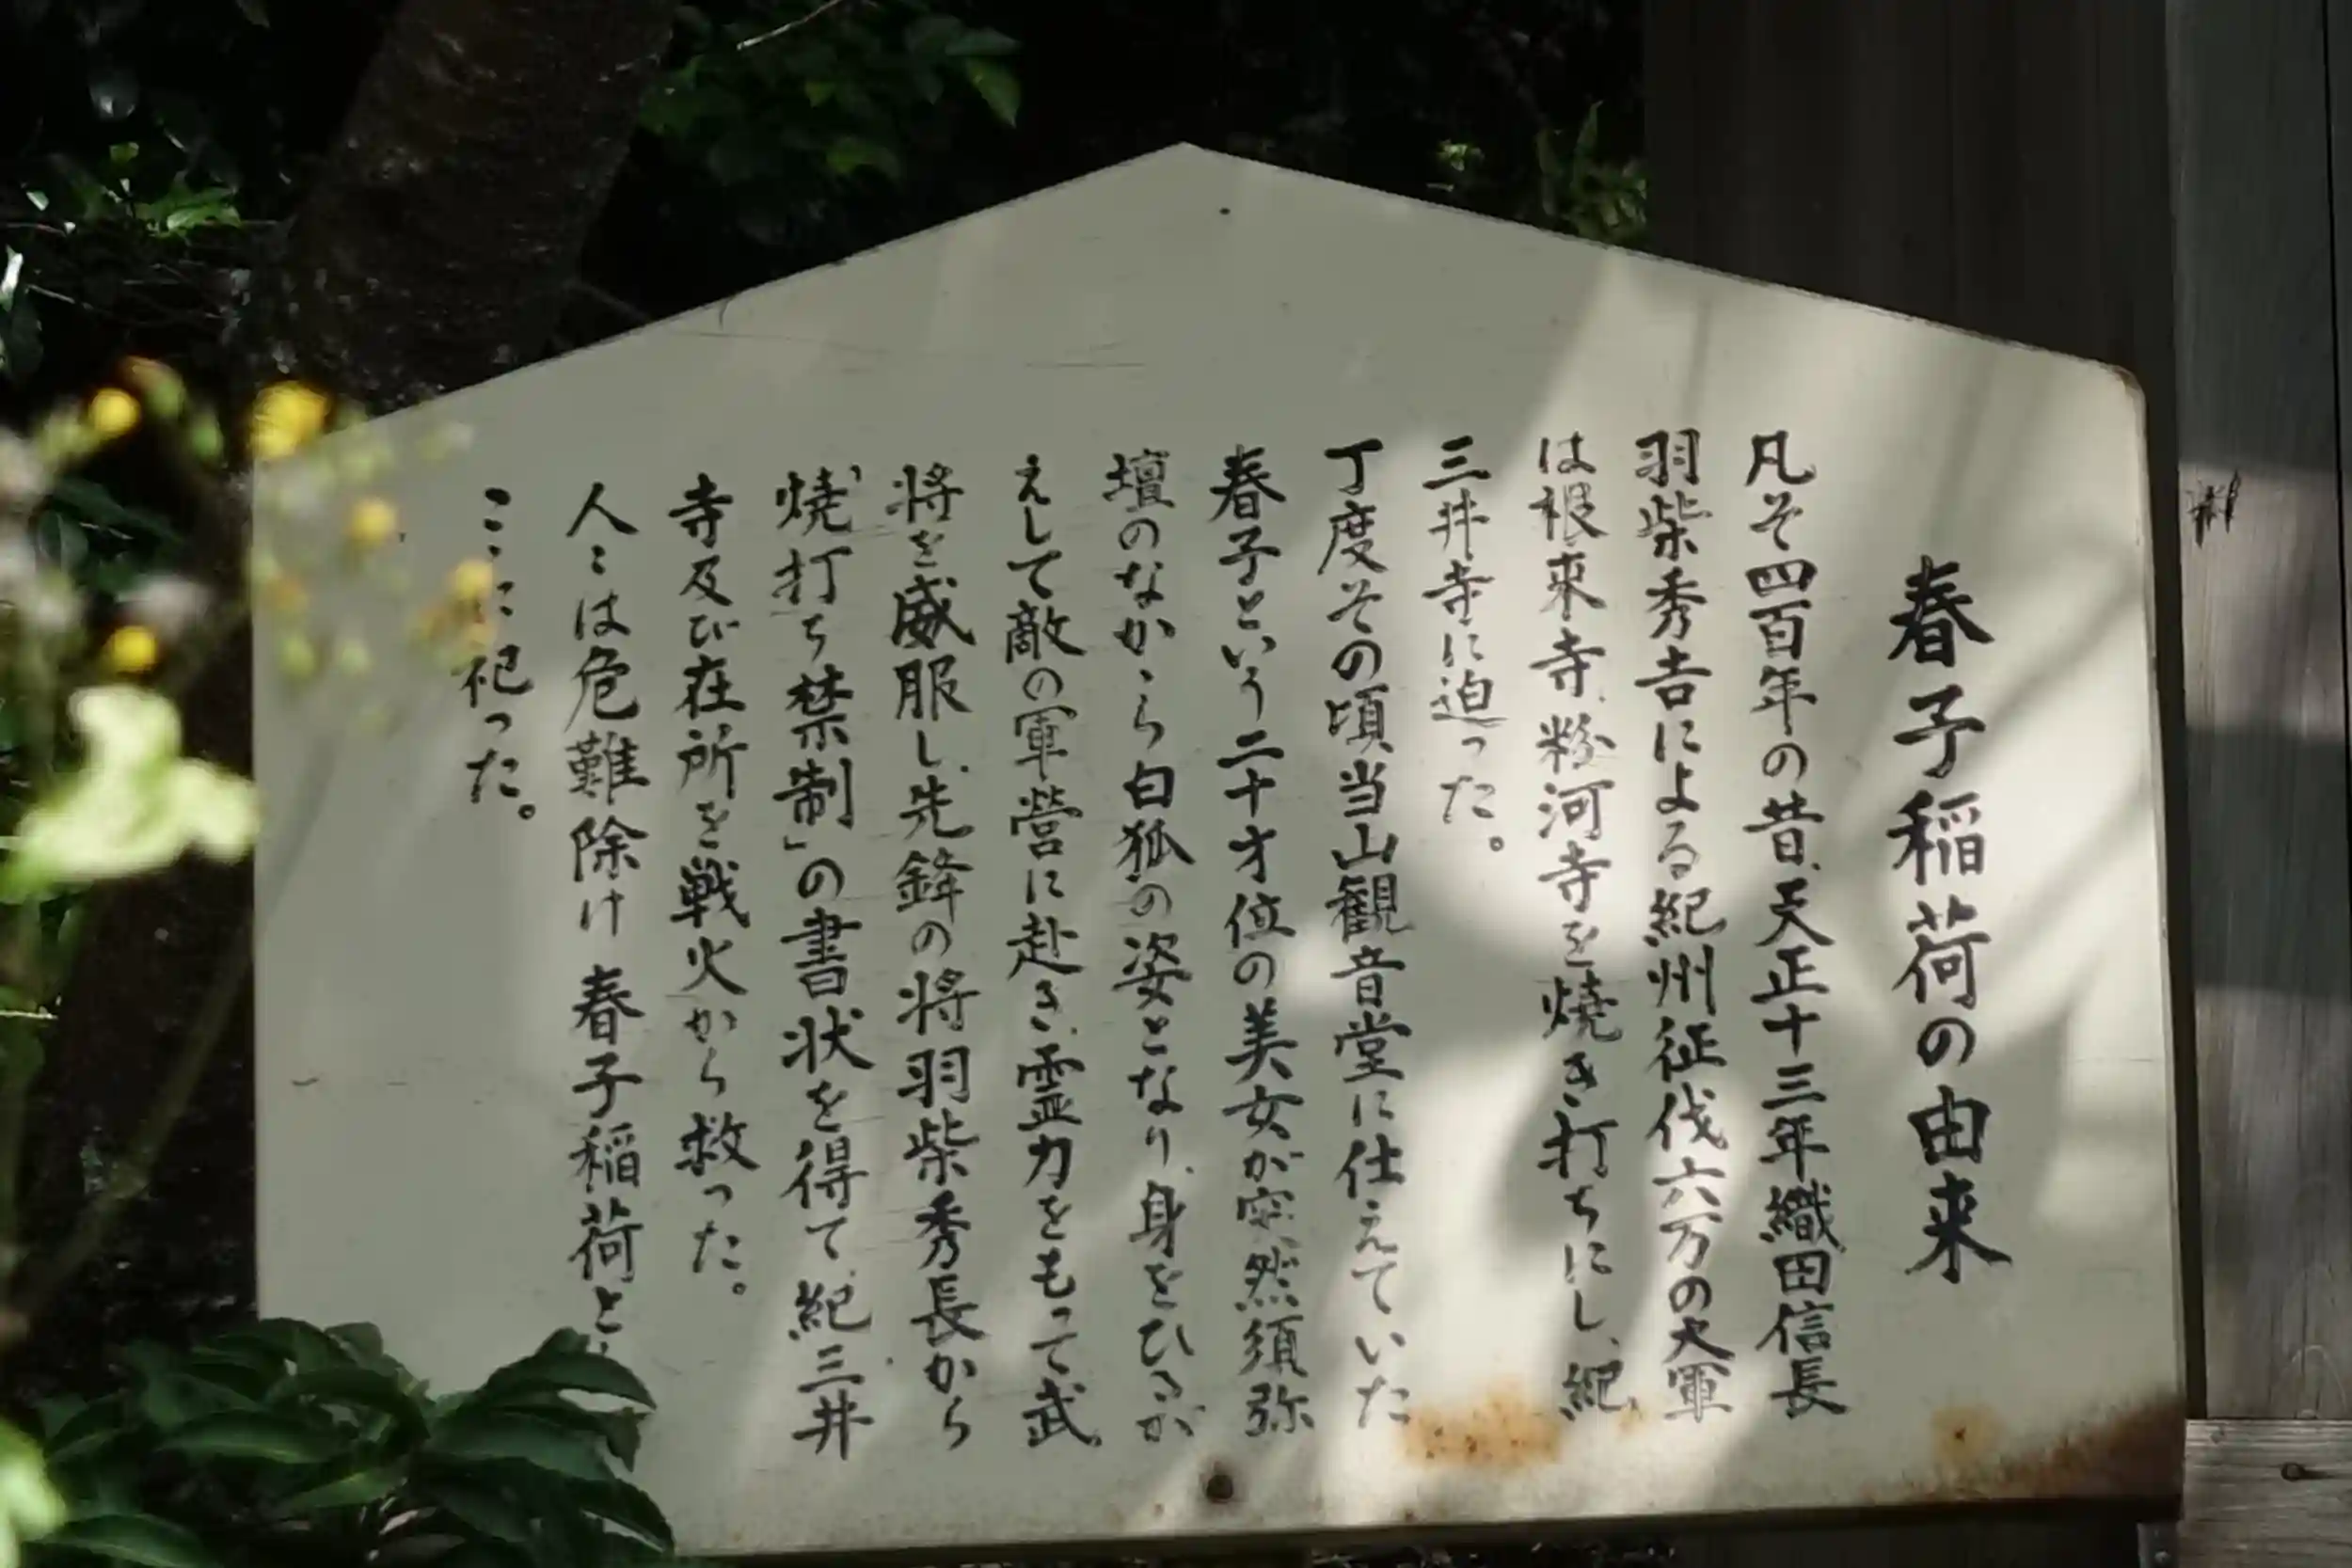 春子稲荷の由来
凡そ四百年の昔、天正十三年織田信長
羽柴秀吉による紀州征伐六万の大軍
は根来寺、粉河寺を焼き打ちにし、紀
三井寺に迫った。
丁度その頃当山観音堂に仕えていた
春子という二十才位の美女が突然須弥
壇のなかから白狐の姿となり、身をひるが
えして敵の軍営に赴き、霊力をもって武
将を威服し、先鋒の将羽柴秀長から
「焼打ち禁制」の書状を得て、紀三井
寺及び在所を戦火から救った。
人々は危難除け春子稲荷と
ここに祀った。